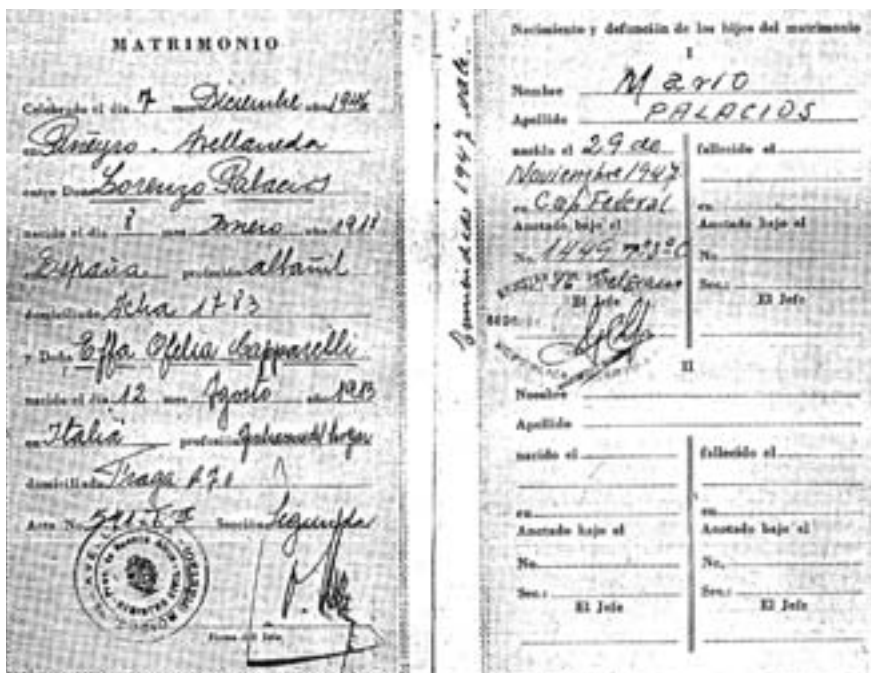 MATRIMONIO
Celebrado el día 7 mes Diciembre año 1946
en Piñeyro - Avellaneda
entre Don Lorenzo Palacios
nacido el día 8 mes Enero año 1911
España profesión albañil
domiciliado 1783
y Doña Effa Ofelia Capparelli
nacida el día 12 mes Agosto año 1913
en Italia profesión
domiciliada Fraga
Acta No. Sección Segunda
Firma del Jefe
Enmendado 1947 vale.
Nacimiento y defunción de los hijos del matrimonio
I
Nombre Mario
Apellido PALACIOS
nacido el 29 de
Noviembre 1947
en Cap Federal
Anotado bajo el
No. 1449
Belgrano
El Jefe
fallecido el
en
Anotado bajo el
No.
Sec.:
El Jefe
II
Nombre
Apellido
nacido el
en
Anotado bajo el
No.
Sec.:
El Jefe
fallecido el
en
Anotado bajo el
No.
Sec.:
El Jefe